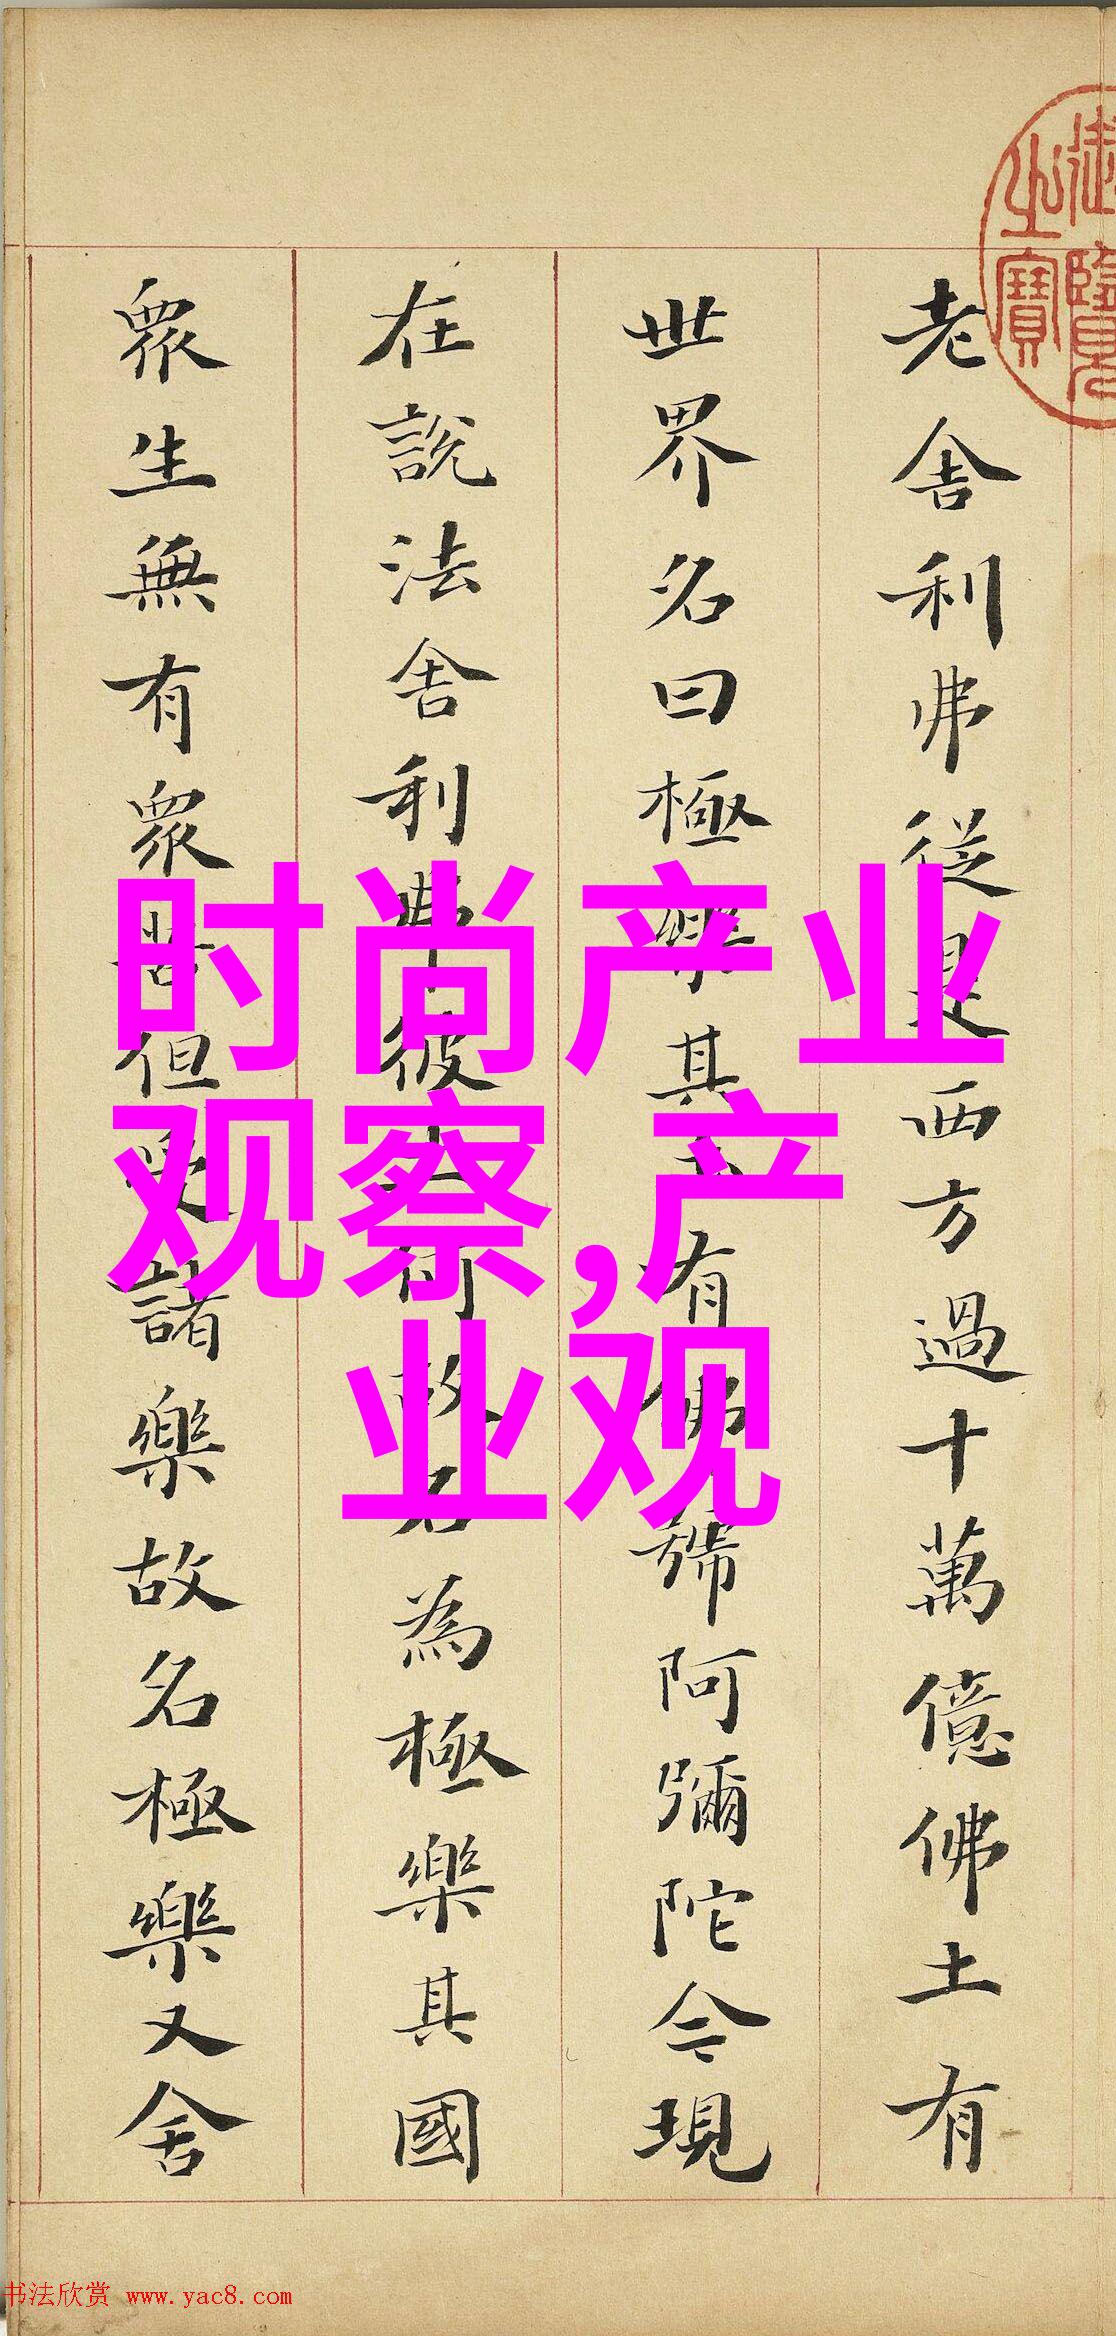 老舍利弗從是西方過十萬億佛土有
世界名曰極樂其土有佛號阿彌陀今現
在說法舍利弗彼土何故名為極樂其國
眾生無有眾苦但受諸樂故名極樂又舍
御覽之寶
时尚产业
观察,产
业观
书法欣赏 www.yac8.com